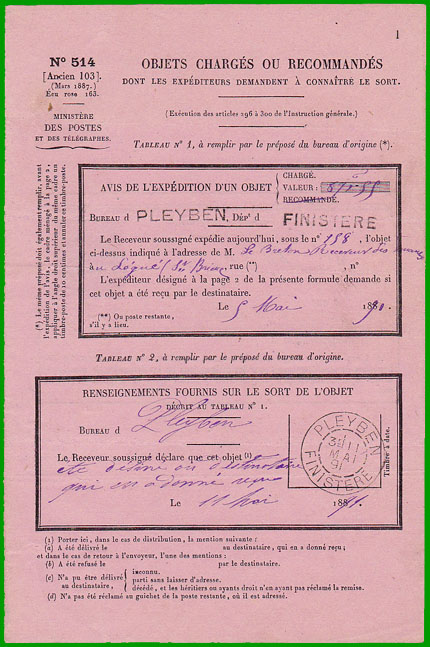 1
Nº 514
[Ancien 103].
(Mars 1887.)
Ecu rose 163.
MINISTÈRE
DES POSTES
ET DES TÉLÉGRAPHES.
OBJETS CHARGÉS OU RECOMMANDÉS
DONT LES EXPÉDITEURS DEMANDENT À CONNAÎTRE LE SORT.
(Exécution des articles 296 à 300 de l'Instruction générale.)
TABLEAU Nº 1, à remplir par le préposé du bureau d'origine (*).
(*) Le même préposé doit également remplir, avant
l'expédition de l'avis, le cadre ménagé à la page 2,
appliquer à l'angle droit supérieur du même cadre un
timbre-poste de 10 centimes et annuler ce timbre-poste.
AVIS DE L'EXPÉDITION D'UN OBJET
CHARGÉ.
VALEUR :
RECOMMANDÉ.
BUREAU d PLEYBEN, DÉPt d FINISTERE
Le Receveur soussigné expédie aujourd'hui, sous le nº 158, l'objet
ci-dessus indiqué à l'adresse de M. Le Breton Receveur des
à au Légué/St Brieuc rue (**) , nº
L'expéditeur désigné à la page 2 de la présente formule demande si
cet objet a été reçu par le destinataire.
Le 5 Mai 1891.
(**) Ou poste restante,
s'il y a lieu.
TABLEAU Nº 2, à remplir par le préposé du bureau d'origine.
RENSEIGNEMENTS FOURNIS SUR LE SORT DE L'OBJET
DÉCRIT AU TABLEAU Nº 1.
BUREAU d Pleyben
Le Receveur soussigné déclare que cet objet (1)
destinataire
qui en a donné reçu
Le 11 Mai 1891.
PLEYBEN
MAI
91
FINISTERE
Timbre à date.
(1) Porter ici, dans le cas de distribution, la mention suivante :
(a) A été délivré le au destinataire, qui en a donné reçu ;
et dans le cas de retour à l'envoyeur, l'une des mentions :
(b) A été refusé le par le destinataire.
(c) N'a pu être délivré au destinataire,
inconnu.
parti sans laisser d'adresse.
décédé, et les héritiers ou ayants droit n'en ayant pas réclamé la remise.
(d) N'a pas été réclamé au guichet de la poste restante, où il est adressé.